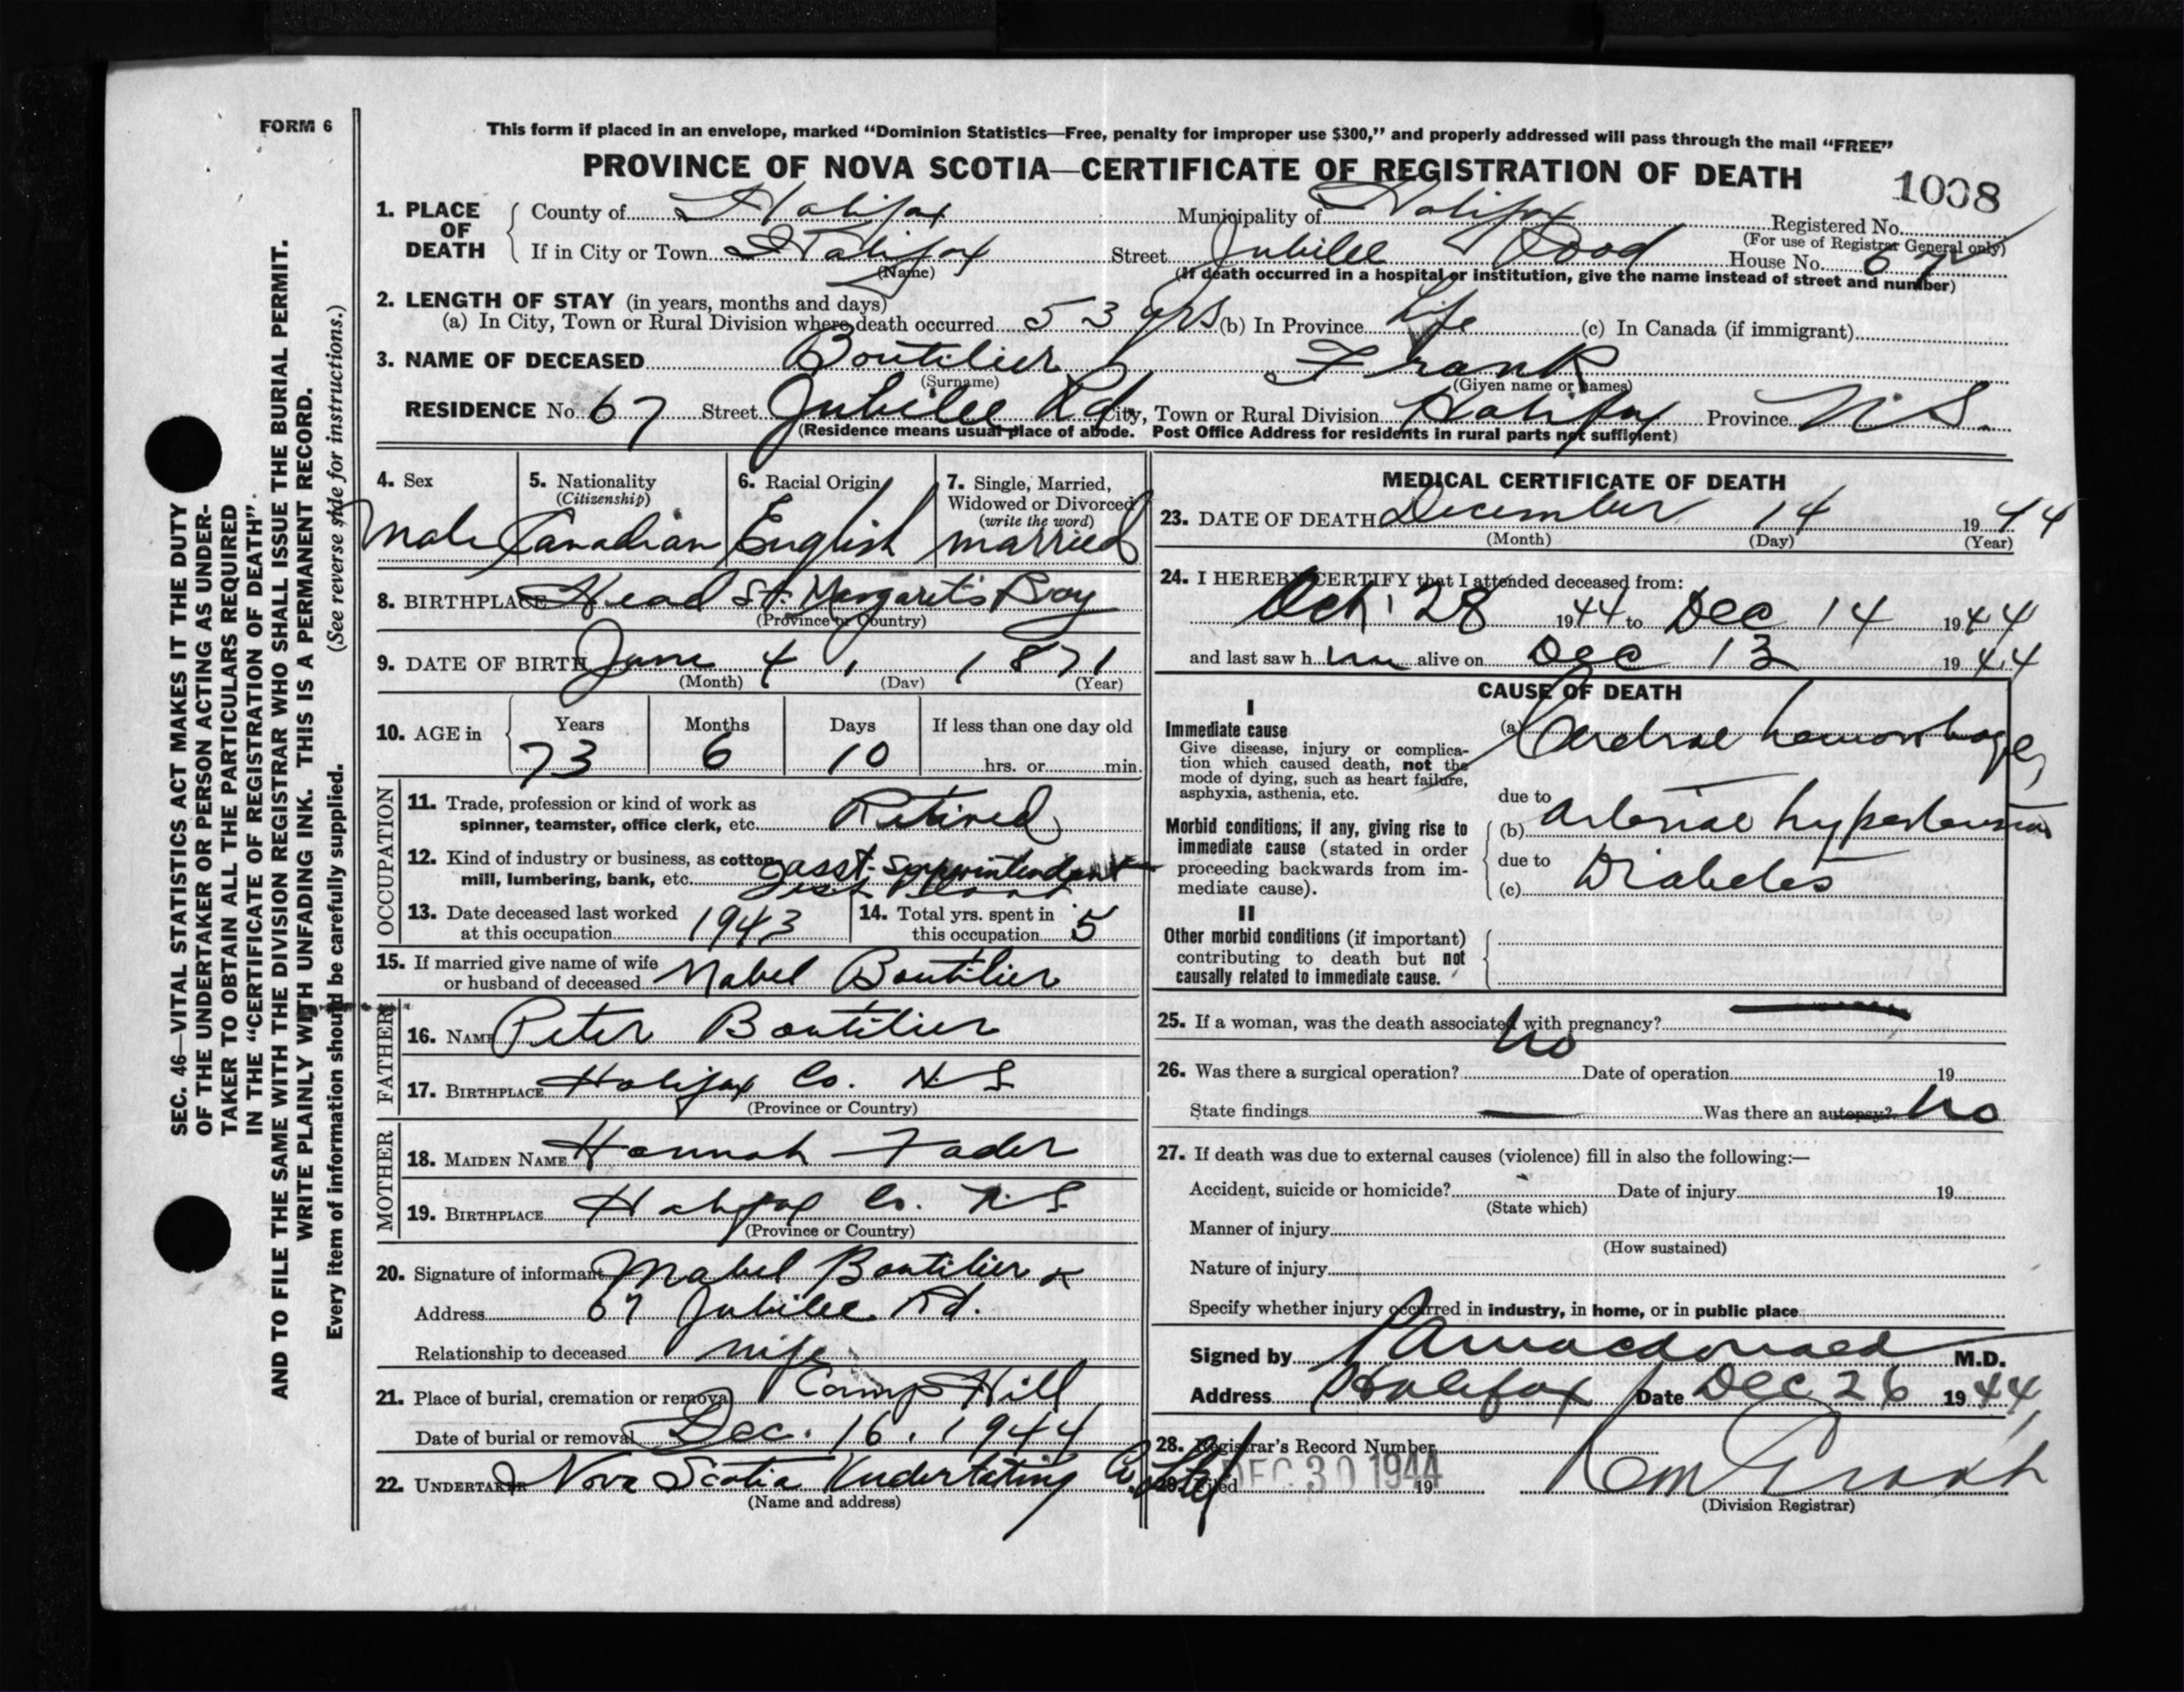 FORM 6
This form if placed in an envelope, marked “Dominion Statistics—Free, penalty for improper use $300,” and properly addressed will pass through the mail “FREE”
PROVINCE OF NOVA SCOTIA—CERTIFICATE OF REGISTRATION OF DEATH
1008
1. PLACE OF DEATH
County of Halifax Municipality of Halifax Registered No.
(For use of Registrar General only)
If in City or Town Halifax Street Jubilee Road House No. 67
(Name) (If death occurred in a hospital or institution, give the name instead of street and number)
2. LENGTH OF STAY (in years, months and days)
(a) In City, Town or Rural Division where death occurred 53 yrs (b) In Province Life (c) In Canada (if immigrant)
3. NAME OF DECEASED Boutilier Frank
(Surname) (Given name or names)
RESIDENCE No. 67 Street Jubilee Rd City, Town or Rural Division Halifax Province N.S.
(Residence means usual place of abode. Post Office Address for residents in rural parts not sufficient)
4. Sex
Male
5. Nationality
(Citizenship)
Canadian
6. Racial Origin
English
7. Single, Married,
Widowed or Divorced
(write the word)
married
8. BIRTHPLACE Head St. Margaret's Bay
(Province or Country)
9. DATE OF BIRTH June 4, 1871
(Month) (Day) (Year)
10. AGE in
Years Months Days If less than one day old
73 6 10 hrs. or min.
OCCUPATION
11. Trade, profession or kind of work as
spinner, teamster, office clerk, etc. Retired
12. Kind of industry or business, as cotton
mill, lumbering, bank, etc. asst. Superintendant
13. Date deceased last worked
at this occupation 1943
14. Total yrs. spent in
this occupation 5
15. If married give name of wife
or husband of deceased Mabel Boutilier
FATHER
16. NAME Peter Boutilier
17. BIRTHPLACE Halifax Co. N.S
(Province or Country)
MOTHER
18. MAIDEN NAME Hannah Fader
19. BIRTHPLACE Halifax Co. N.S
(Province or Country)
20. Signature of informant Mabel Boutilier x
Address 67 Jubilee Rd.
Relationship to deceased wife
21. Place of burial, cremation or removal Camp Hill
Date of burial or removal Dec. 16, 1944
22. UNDERTAKER Nova Scotia Undertaking Co. Ltd
(Name and address)
MEDICAL CERTIFICATE OF DEATH
23. DATE OF DEATH December 14 1944
(Month) (Day) (Year)
24. I HEREBY CERTIFY that I attended deceased from:
Oct. 28 1944 to Dec 14 1944
and last saw him alive on Dec 13 1944
CAUSE OF DEATH
I
Immediate cause
Give disease, injury or complica-
tion which caused death, not the
mode of dying, such as heart failure,
asphyxia, asthenia, etc.
(a) Cerebral hemorrhage,
due to
Morbid conditions, if any, giving rise to
immediate cause (stated in order
proceeding backwards from im-
mediate cause).
(b) arterial hypertension
due to
(c) Diabetes
II
Other morbid conditions (if important)
contributing to death but not
causally related to immediate cause.
25. If a woman, was the death associated with pregnancy?
26. Was there a surgical operation? No Date of operation 19
State findings Was there an autopsy? No
27. If death was due to external causes (violence) fill in also the following:—
Accident, suicide or homicide? Date of injury 19
(State which)
Manner of injury
(How sustained)
Nature of injury
Specify whether injury occurred in industry, in home, or in public place
Signed by Macdonald M.D.
Address Halifax Date Dec 26 1944
28. Registrar's Record Number
29. Filed DEC 30 1944 19
(Division Registrar)
SEC. 46—VITAL STATISTICS ACT MAKES IT THE DUTY
OF THE UNDERTAKER OR PERSON ACTING AS UNDER-
TAKER TO OBTAIN ALL THE PARTICULARS REQUIRED
IN THE “CERTIFICATE OF REGISTRATION OF DEATH”
AND TO FILE THE SAME WITH THE DIVISION REGISTRAR WHO SHALL ISSUE THE BURIAL PERMIT.
WRITE PLAINLY WITH UNFADING INK. THIS IS A PERMANENT RECORD.
Every item of information should be carefully supplied. (See reverse side for instructions.)